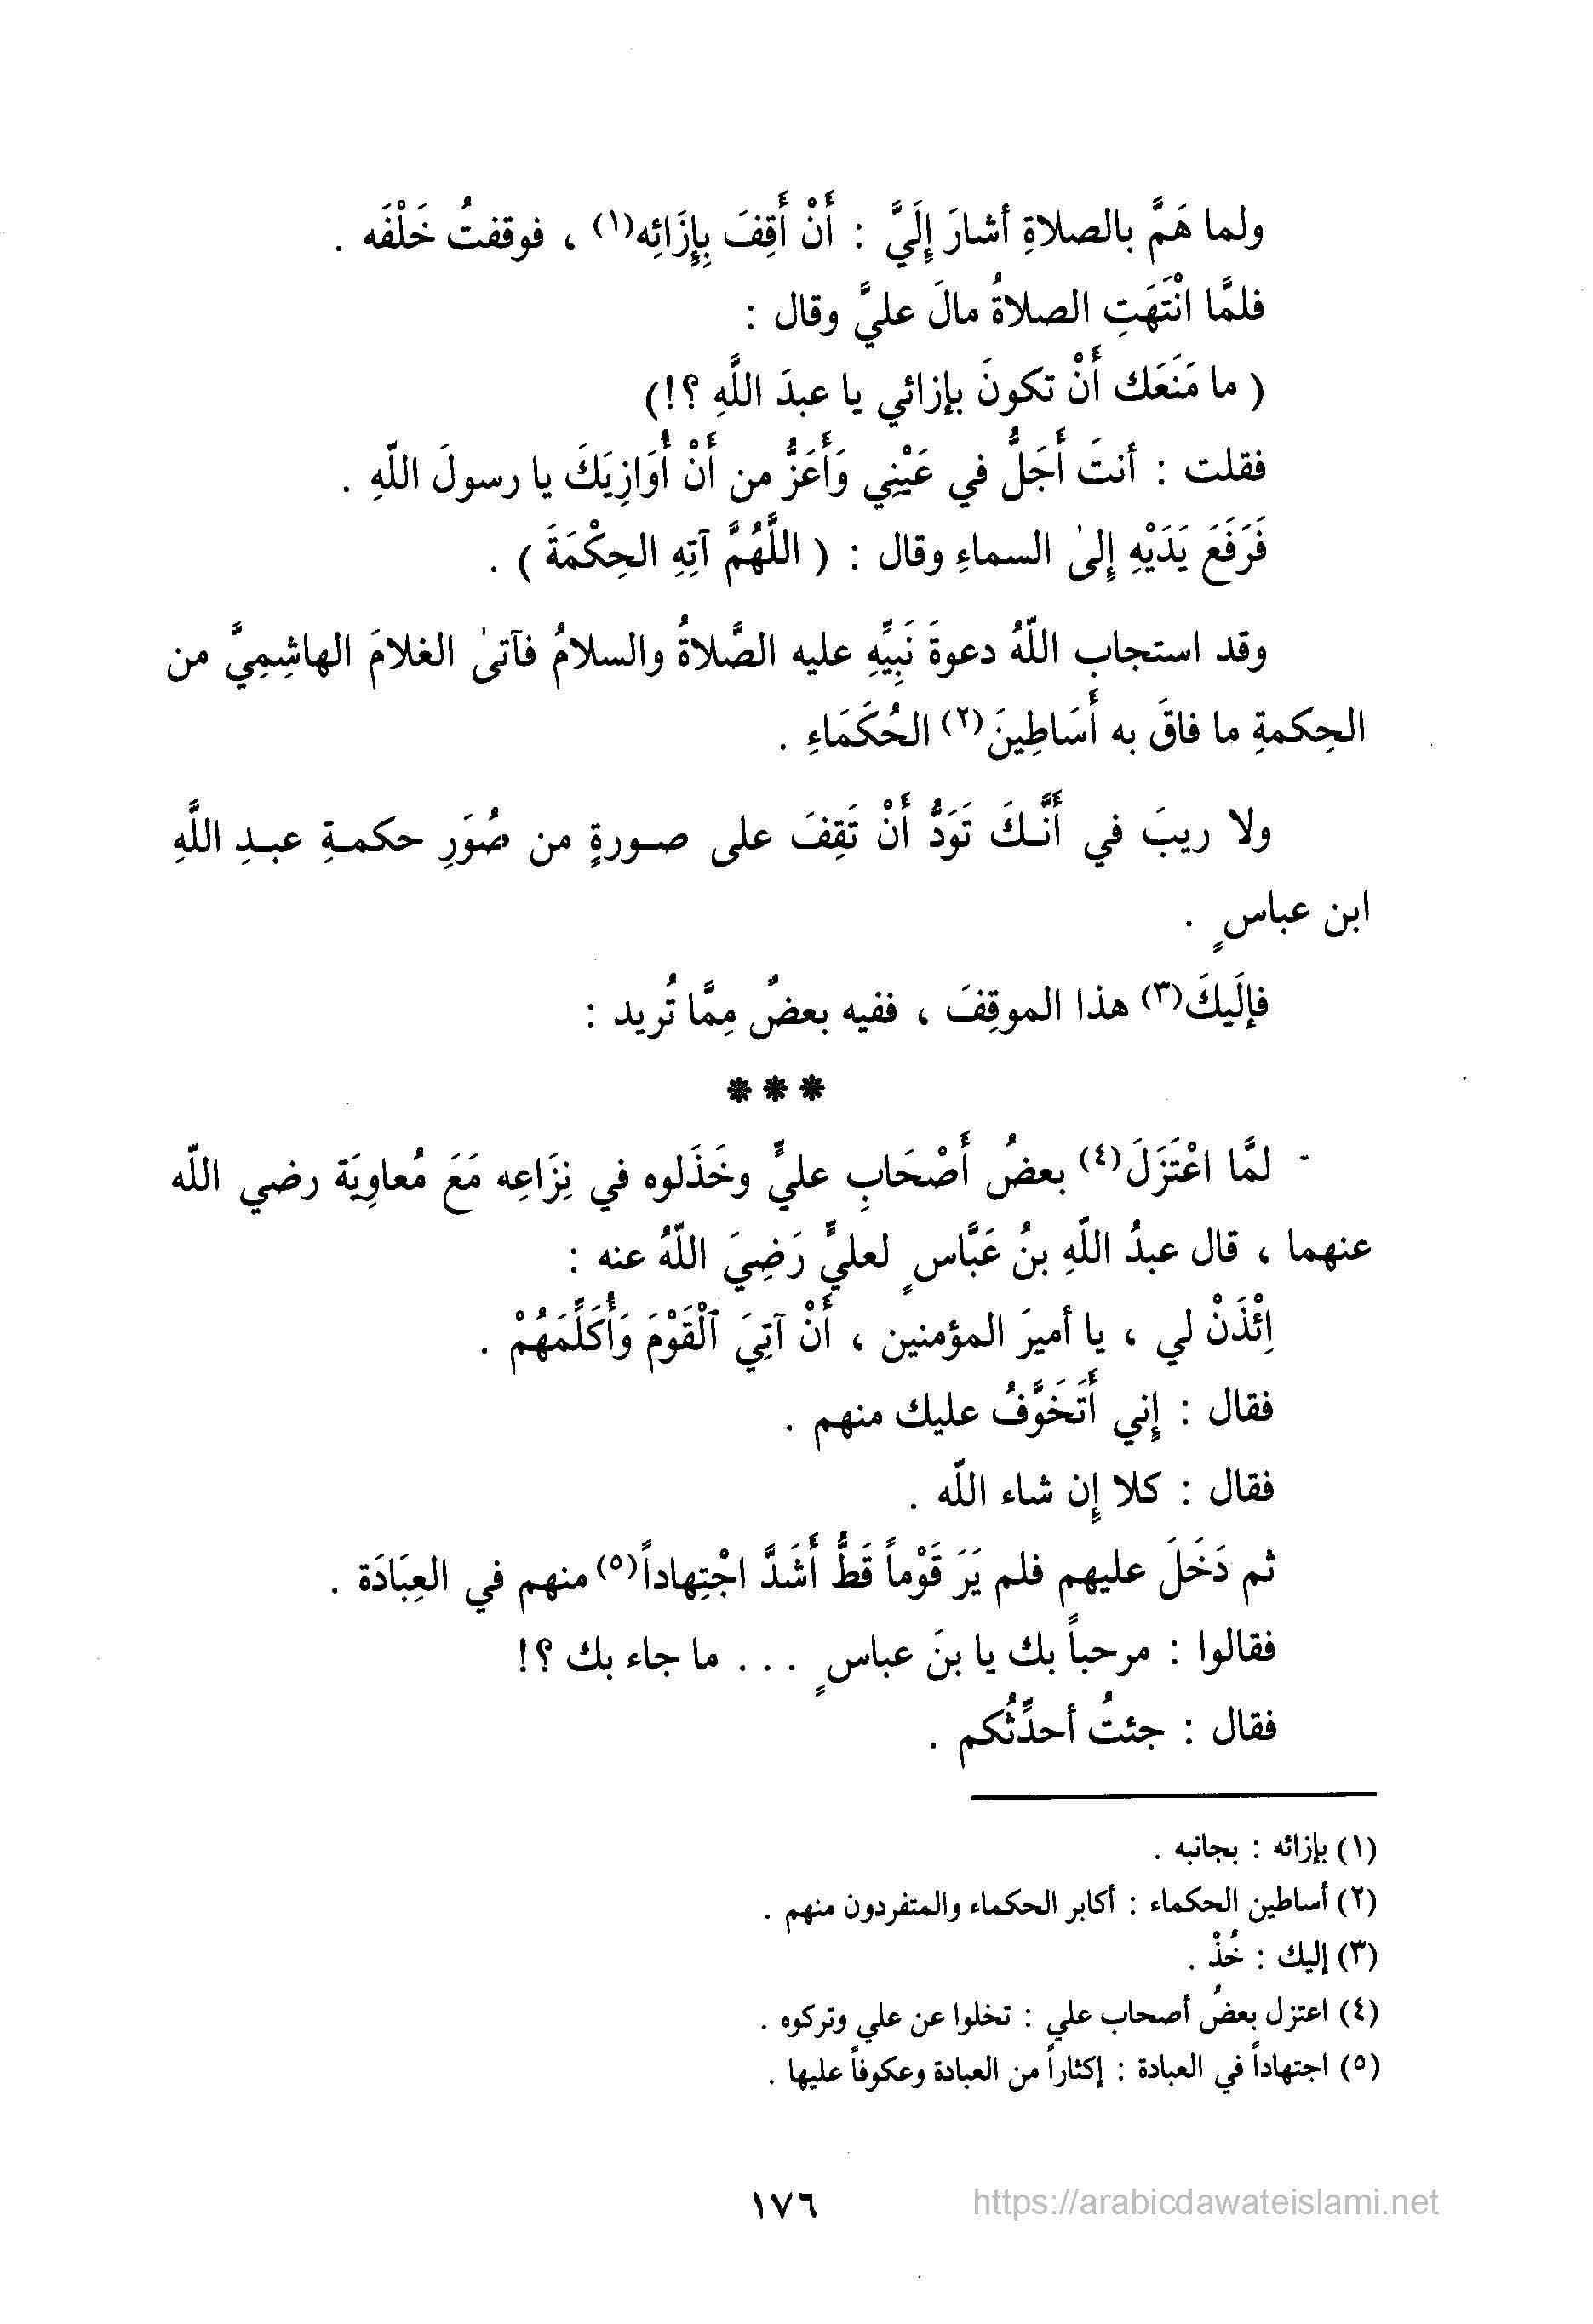 ولما هَمَّ بالصلاةِ أشارَ إِلَيَّ : أَنْ أَقِفَ بِإِزَائِه(١) ، فوقفتُ خَلْفَه .
فلمَّا انْتَهَتِ الصلاةُ مالَ عليَّ وقال :
( ما مَنَعَك أَنْ تكونَ بإزائي يا عبدَ اللَّهِ ؟!)
فقلت : أنتَ أَجَلُّ في عَيْنِي وَأَعَزُّ من أَنْ أُوَازِيَكَ يا رسولَ اللّهِ .
فَرَفَعَ يَدَيْهِ إِلىٰ السماءِ وقال : ( اللَّهُمَّ آتِهِ الحِكْمَةَ ) .
وقد استجاب اللّهُ دعوةَ نَبِيِّهِ عليه الصَّلاةُ والسلامُ فآتىٰ الغلامَ الهاشِمِيَّ من
الحِكمةِ ما فاقَ به أَسَاطِينَ(٢) الحُكَمَاءِ .
ولا ريبَ في أَنَّـكَ تَوَدُّ أَنْ تَقِفَ على صـورةٍ من صُوَرِ حكمـةِ عبـدِ اللَّهِ
ابن عباسٍ .
فإلَيكَ(٣) هذا الموقِفَ ، ففيه بعضُ مِمَّا تُريد :
***
- لمَّا اعْتَزَلَ(٤) بعضُ أَصْحَابِ عليٍّ وخَذَلوه في نِزَاعِه مَعَ مُعاوِيَة رضي اللّه
عنهما ، قال عبدُ اللّهِ بنُ عَبَّاسٍ لعليٍّ رَضِيَ اللّهُ عنه :
اِئْذَنْ لي ، يا أميرَ المؤمنين ، أَنْ آتِيَ ٱلْقَوْمَ وَأُكَلِّمَهُمْ .
فقال : إِني أَتَخَوَّفُ عليك منهم .
فقال : كلا إِن شاء اللّه .
ثم دَخَلَ عليهم فلم يَرَ قَوْماً قَطُّ أَشَدَّ اجْتِهاداً(٥) منهم في العِبَادَة .
فقالوا : مرحباً بك يا بنَ عباسٍ ... ما جاء بك ؟!
فقال : جئتُ أحدِّثُكم .
(١) بإزائه : بجانبه .
(٢) أساطين الحكماء : أكابر الحكماء والمتفردون منهم .
(٣) إليك : خُذْ .
(٤) اعتزل بعضُ أصحاب علي : تخلوا عن علي وتركوه .
(٥) اجتهاداً في العبادة : إكثاراً من العبادة وعكوفاً عليها .
١٧٦
https://arabicdawateislami.net